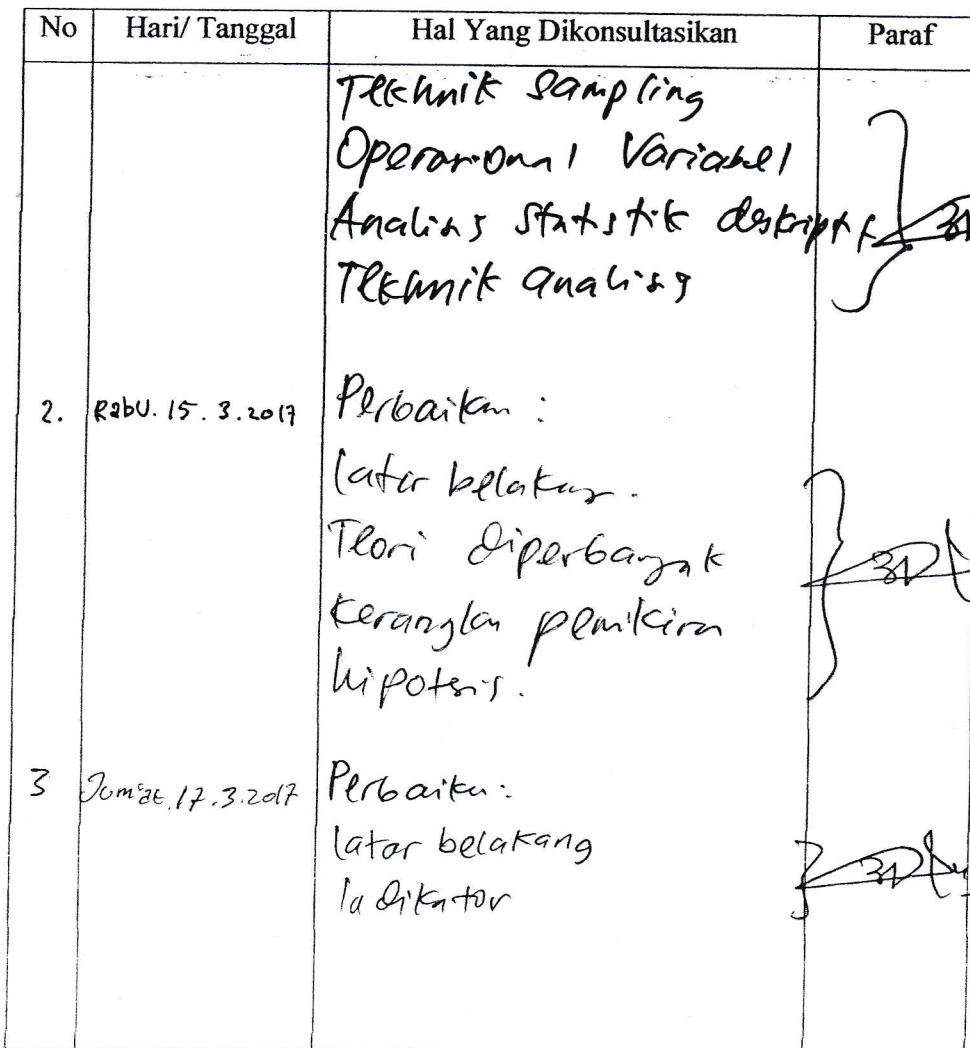 No Hari/ Tanggal Hal Yang Dikonsultasikan Paraf
Tekhnik Sampling
Operasional Variabel
Analisis Statistik deskriptif
Tekhnik analisis
2. Rabu. 15. 3. 2017 Perbaikan :
latar belakang.
Teori diperbanyak
Kerangka pemikiran
hipotesis.
3 Jum'at. 17. 3. 2017 Perbaikan :
latar belakang
Indikator